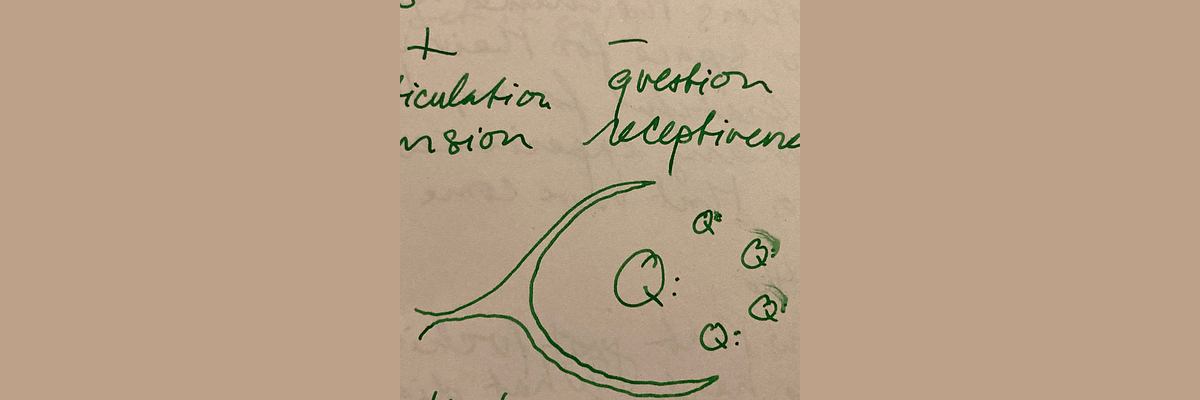 + −
iculation question
nsion receptivene
Q:
Q:
Q:
Q:
Q: